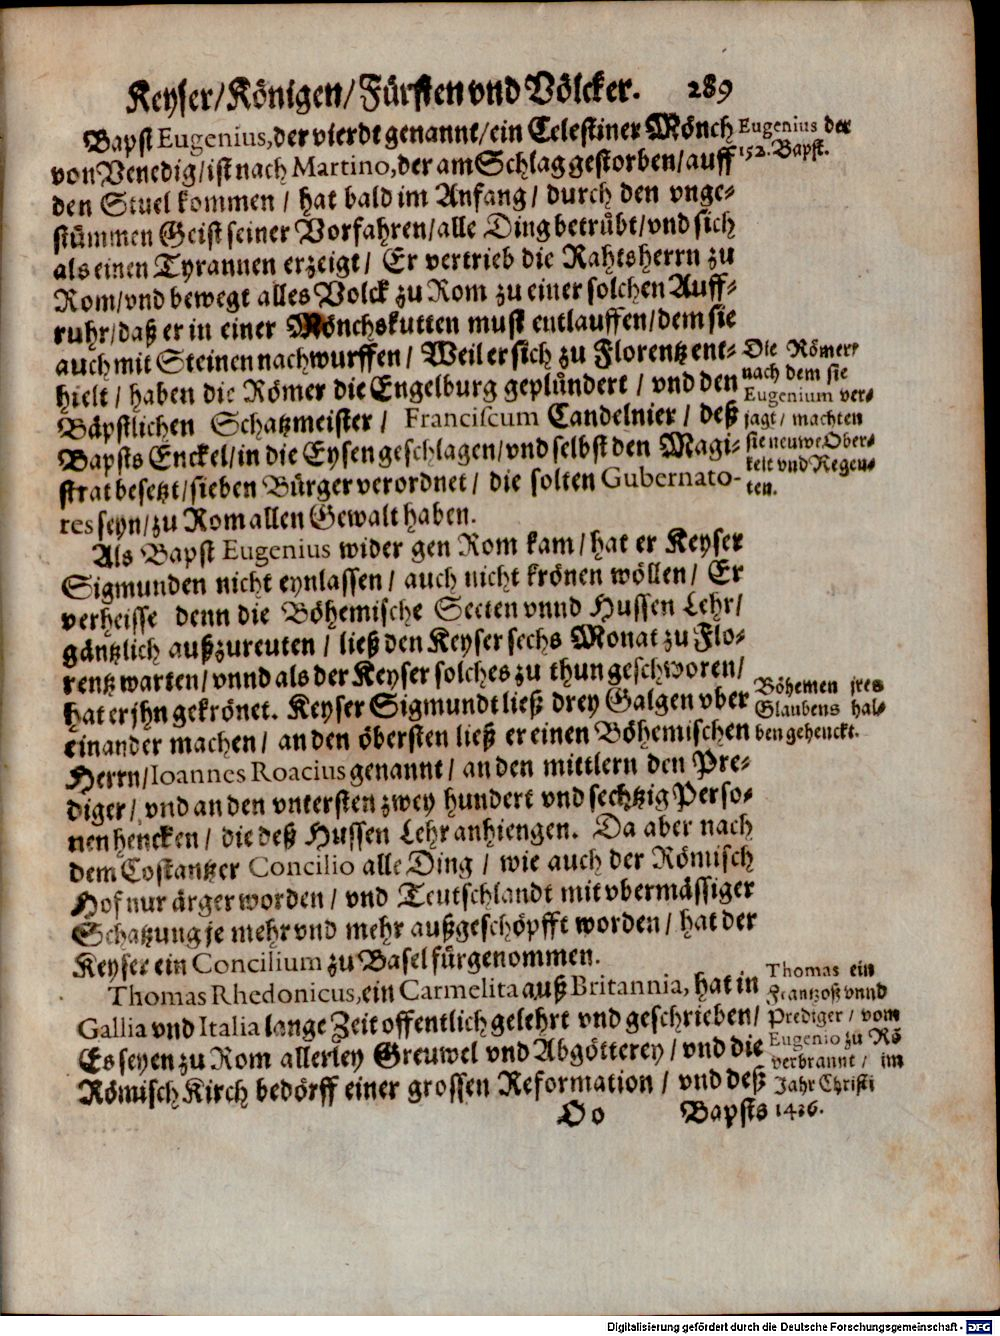 Keyser/Königen/Fürsten vnd Völcker. 289
Bapst Eugenius, der vierdt genannt/ein Celestiner Mönch
von Venedig/ist nach Martino, der am Schlag gestorben/auff
den Stuel kommen / hat bald im Anfang / durch den vnge-
stümmen Geist seiner Vorfahren/alle Ding betrübt/vnd sich
als einen Tyrannen erzeigt / Er vertrieb die Rahtsherrn zu
Rom/vnd bewegt alles Volck zu Rom zu einer solchen Auff-
ruhr/daß er in einer Mönchskutten must entlauffen/dem sie
auch mit Steinen nachwurffen / Weil er sich zu Florentz ent-
hielt / haben die Römer die Engelburg geplündert / vnd den
Bäpstlichen Schatzmeister / Franciscum Candelnier / deß
Bapsts Enckel/in die Eysen geschlagen/vnd selbst den Magi-
strat besetzt/sieben Bürger verordnet / die solten Gubernato-
res seyn/zu Rom allen Gewalt haben.
Als Bapst Eugenius wider gen Rom kam/hat er Keyser
Sigmunden nicht eynlassen / auch nicht krönen wöllen / Er
verheisse denn die Böhemische Secten vnnd Hussen Lehr/
gäntzlich außzureuten / ließ den Keyser sechs Monat zu Flo-
rentz warten/vnnd als der Keyser solches zu thun geschworen/
hat er jhn gekrönet. Keyser Sigmundt ließ drey Galgen vber
einander machen / an den öbersten ließ er einen Böhemischen
Herrn/Ioannes Roacius genannt / an den mittlern den Pre-
diger / vnd an den vntersten zwey hundert vnd sechtzig Perso-
nen hencken / die deß Hussen Lehr anhiengen. Da aber nach
dem Costantzer Concilio alle Ding / wie auch der Römisch
Hof nur ärger worden / vnd Teutschlandt mit vbermässiger
Schatzung je mehr vnd mehr außgeschöpfft worden / hat der
Keyser ein Concilium zu Basel fürgenommen.
Thomas Rhedonicus, ein Carmelita auß Britannia, hat in
Gallia vnd Italia lange Zeit offentlich gelehrt vnd geschrieben/
Es seyen zu Rom allerley Greuwel vnd Abgötterey / vnd die
Römisch Kirch bedörff einer grossen Reformation / vnd deß
Oo Bapsts
Eugenius der
152. Bapst.
Die Römer/
nach dem sie
Eugenium ver-
jagt / machten
sie neuwe Ober-
keit vnd Regen-
ten.
Böhemen jres
Glaubens hal-
ben gehenckt.
Thomas ein
Frantzoß vnnd
Prediger / vom
Eugenio zu Rō
verbrannt / im
Jahr Christi
1436.
Digitalisierung gefördert durch die Deutsche Forschungsgemeinschaft - DFG